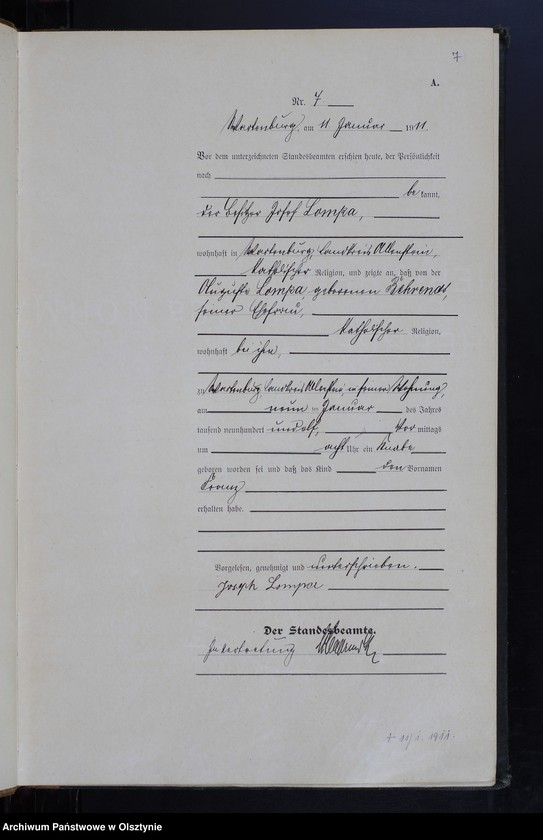 7
A.
Nr. 7
Wartenburg, am 11. Januar 1911.
Vor dem unterzeichneten Standesbeamten erschien heute, der Persönlichkeit
nach
be kannt,
der Besitzer Josef Lompa,
wohnhaft in Wartenburg, Landkreis Allenstein,
katholischer Religion, und zeigte an, daß von der
Auguste Lompa, geborenen Behrendt,
seiner Ehefrau,
katholischer Religion,
wohnhaft bei ihm,
zu Wartenburg, Landkreis Allenstein, in seiner Wohnung,
am neun ten Januar des Jahres
tausend neunhundert und elf, Vor mittags
um acht Uhr ein Knabe
geboren worden sei und daß das Kind den Vornamen
Franz
erhalten habe.
Vorgelesen, genehmigt und unterschrieben.
Joseph Lompa
Der Standesbeamte.
In Vertretung
+ 1911.
Archiwum Państwowe w Olsztynie